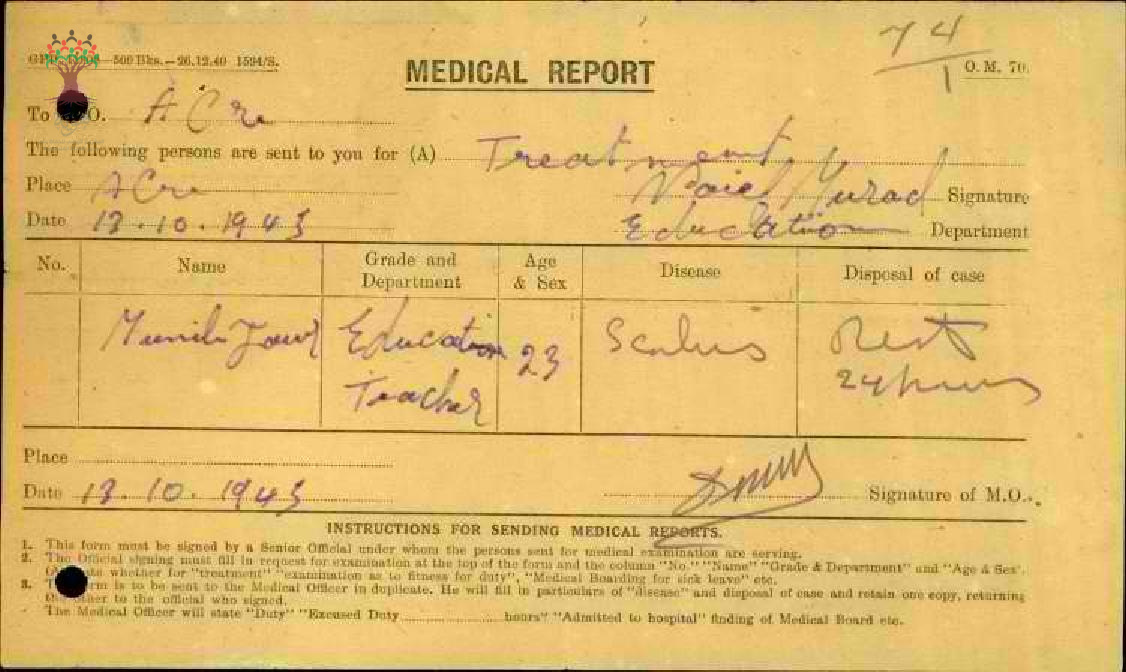 74/1
500 Bks.—26.12.40 1594/S.
MEDICAL REPORT
O.M. 70.
To O. Acre
The following persons are sent to you for (A) Treatment
Place Acre
Murad Signature
Date 13.10.1945
Education Department
No. Name Grade and Department Age & Sex Disease Disposal of case
Education Teacher 23 Scabies Rest 24 hours
Place
Date 13.10.1945
Signature of M.O.
INSTRUCTIONS FOR SENDING MEDICAL REPORTS.
1. This form must be signed by a Senior Official under whom the persons sent for medical examination are serving.
2. The Official signing must fill in request for examination at the top of the form and the column "No." "Name" "Grade & Department" and "Age & Sex".
whether for "treatment" "examination as to fitness for duty", "Medical Boarding for sick leave" etc.
3. form is to be sent to the Medical Officer in duplicate. He will fill in particulars of "disease" and disposal of case and retain one copy, returning
the other to the official who signed.
The Medical Officer will state "Duty" "Excused Duty hours" "Admitted to hospital" finding of Medical Board etc.